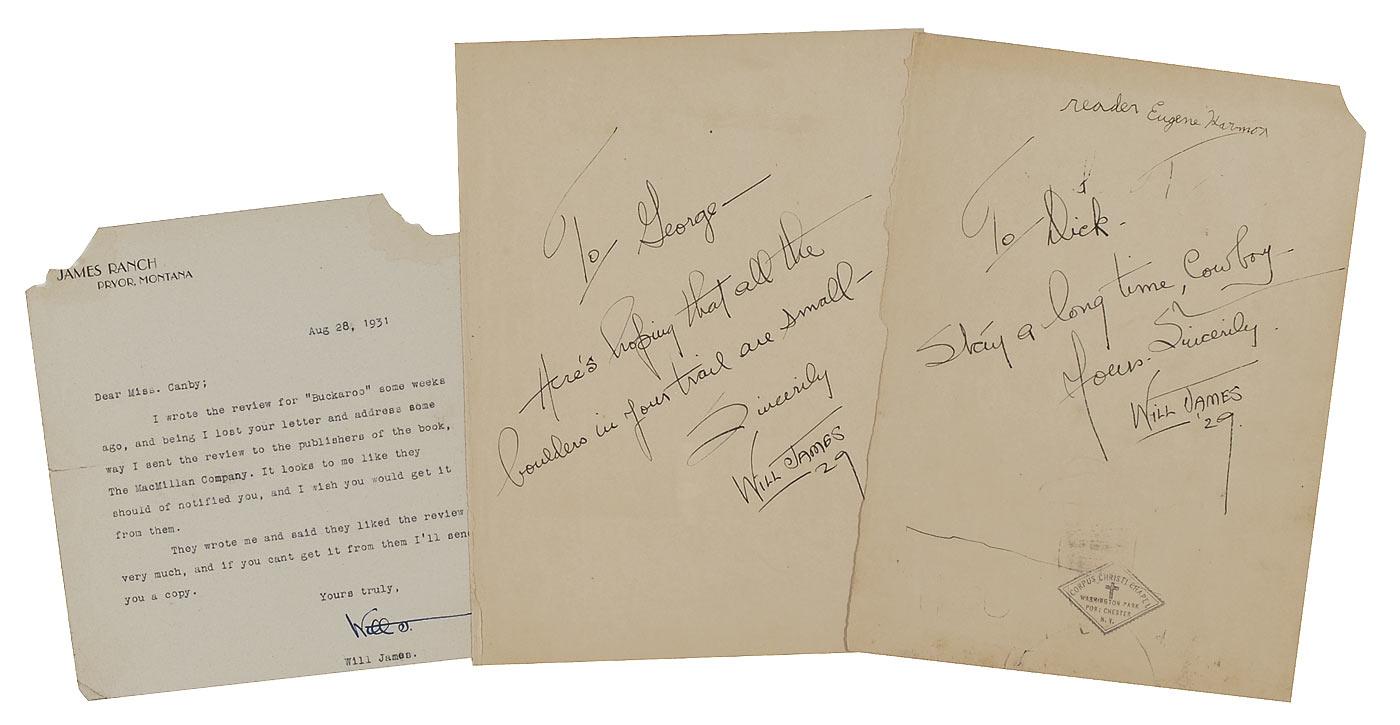 JAMES RANCH
PRYOR, MONTANA
Aug 28, 1931
Dear Miss. Canby;
I wrote the review for "Buckaroo" some weeks
ago, and being I lost your letter and address some
way I sent the review to the publishers of the book,
The MacMillan Company. It looks to me like they
should of notified you, and I wish you would get it
from them.
They wrote me and said they liked the review
very much, and if you cant get it from them I'll send
you a copy.
Yours truly,
Will J.
Will James.
To George—
Here's hoping that all the
boulders in your trail are small—
Sincerily
WILL JAMES
29
reader Eugene Harmon
To Dick.
Stay a long time, Cowboy—
Yours Sincerily.
WILL JAMES
'29.
CORPUS CHRISTI CHAPEL
WASHINGTON PARK
PORT CHESTER
N.Y.